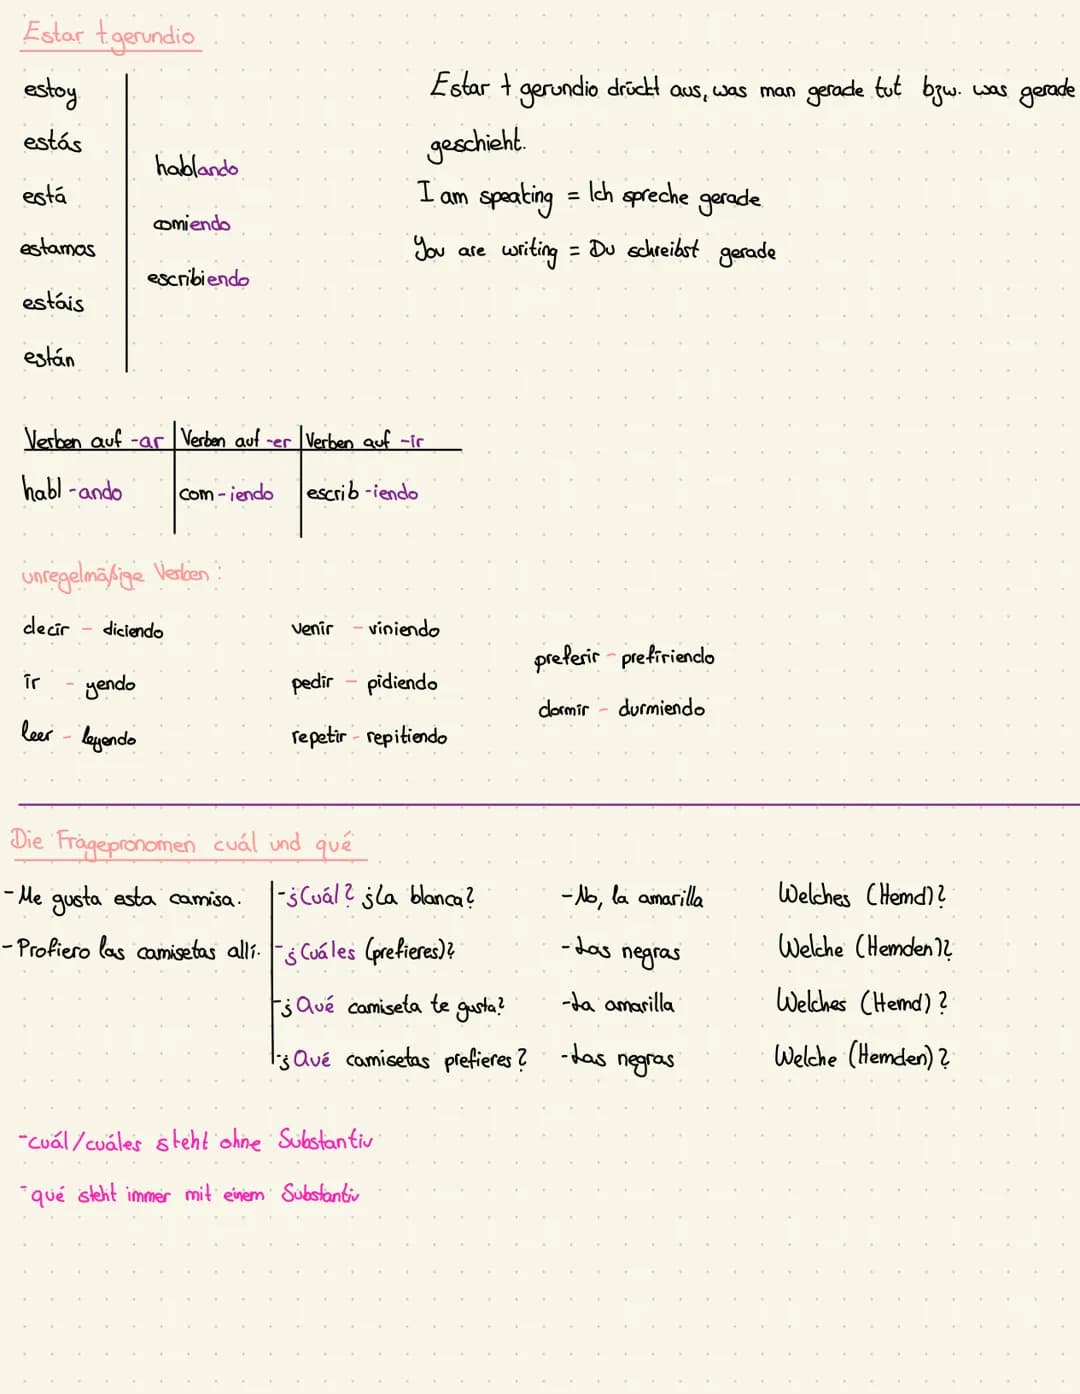 Estar + gerundio
estoy
estás
está
estamos
estáis
están
hablando
comiendo
escribiendo
Estar + gerundio drückt aus, was man gerade tut bzw. was gerade
geschieht.
I am speaking = Ich spreche gerade
You are writing = Du schreibst gerade
Verben auf -ar Verben auf -er Verben auf -ir
habl -ando com -iendo escrib -iendo
unregelmäßige Verben:
decir - diciendo
ir - yendo
leer - leyendo
venir - viniendo
pedir - pidiendo
repetir - repitiendo
preferir - prefiriendo
dormir - durmiendo
Die Fragepronomen cuál und qué
-Me gusta esta camisa. -¿Cuál? ¿La blanca? -No, la amarilla Welches (Hemd)?
-Profiero las camisetas allí. -¿Cuáles (prefieres)? -Las negras Welche (Hemden)?
-¿Qué camiseta te gusta? -La amarilla Welches (Hemd)?
-¿Qué camisetas prefieres? -Las negras Welche (Hemden)?
-cuál/cuáles steht ohne Substantiv
-qué steht immer mit einem Substantiv